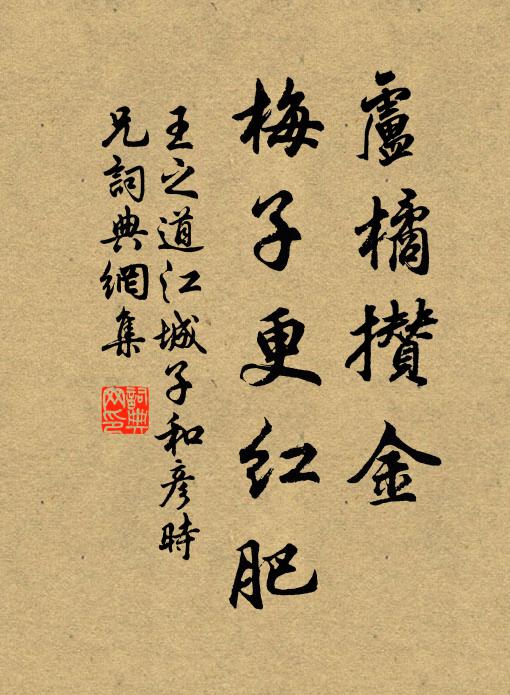 盧橘攢金
梅子更红肥
王之道江城子和彦時
兄詞典網集
詞典
网印